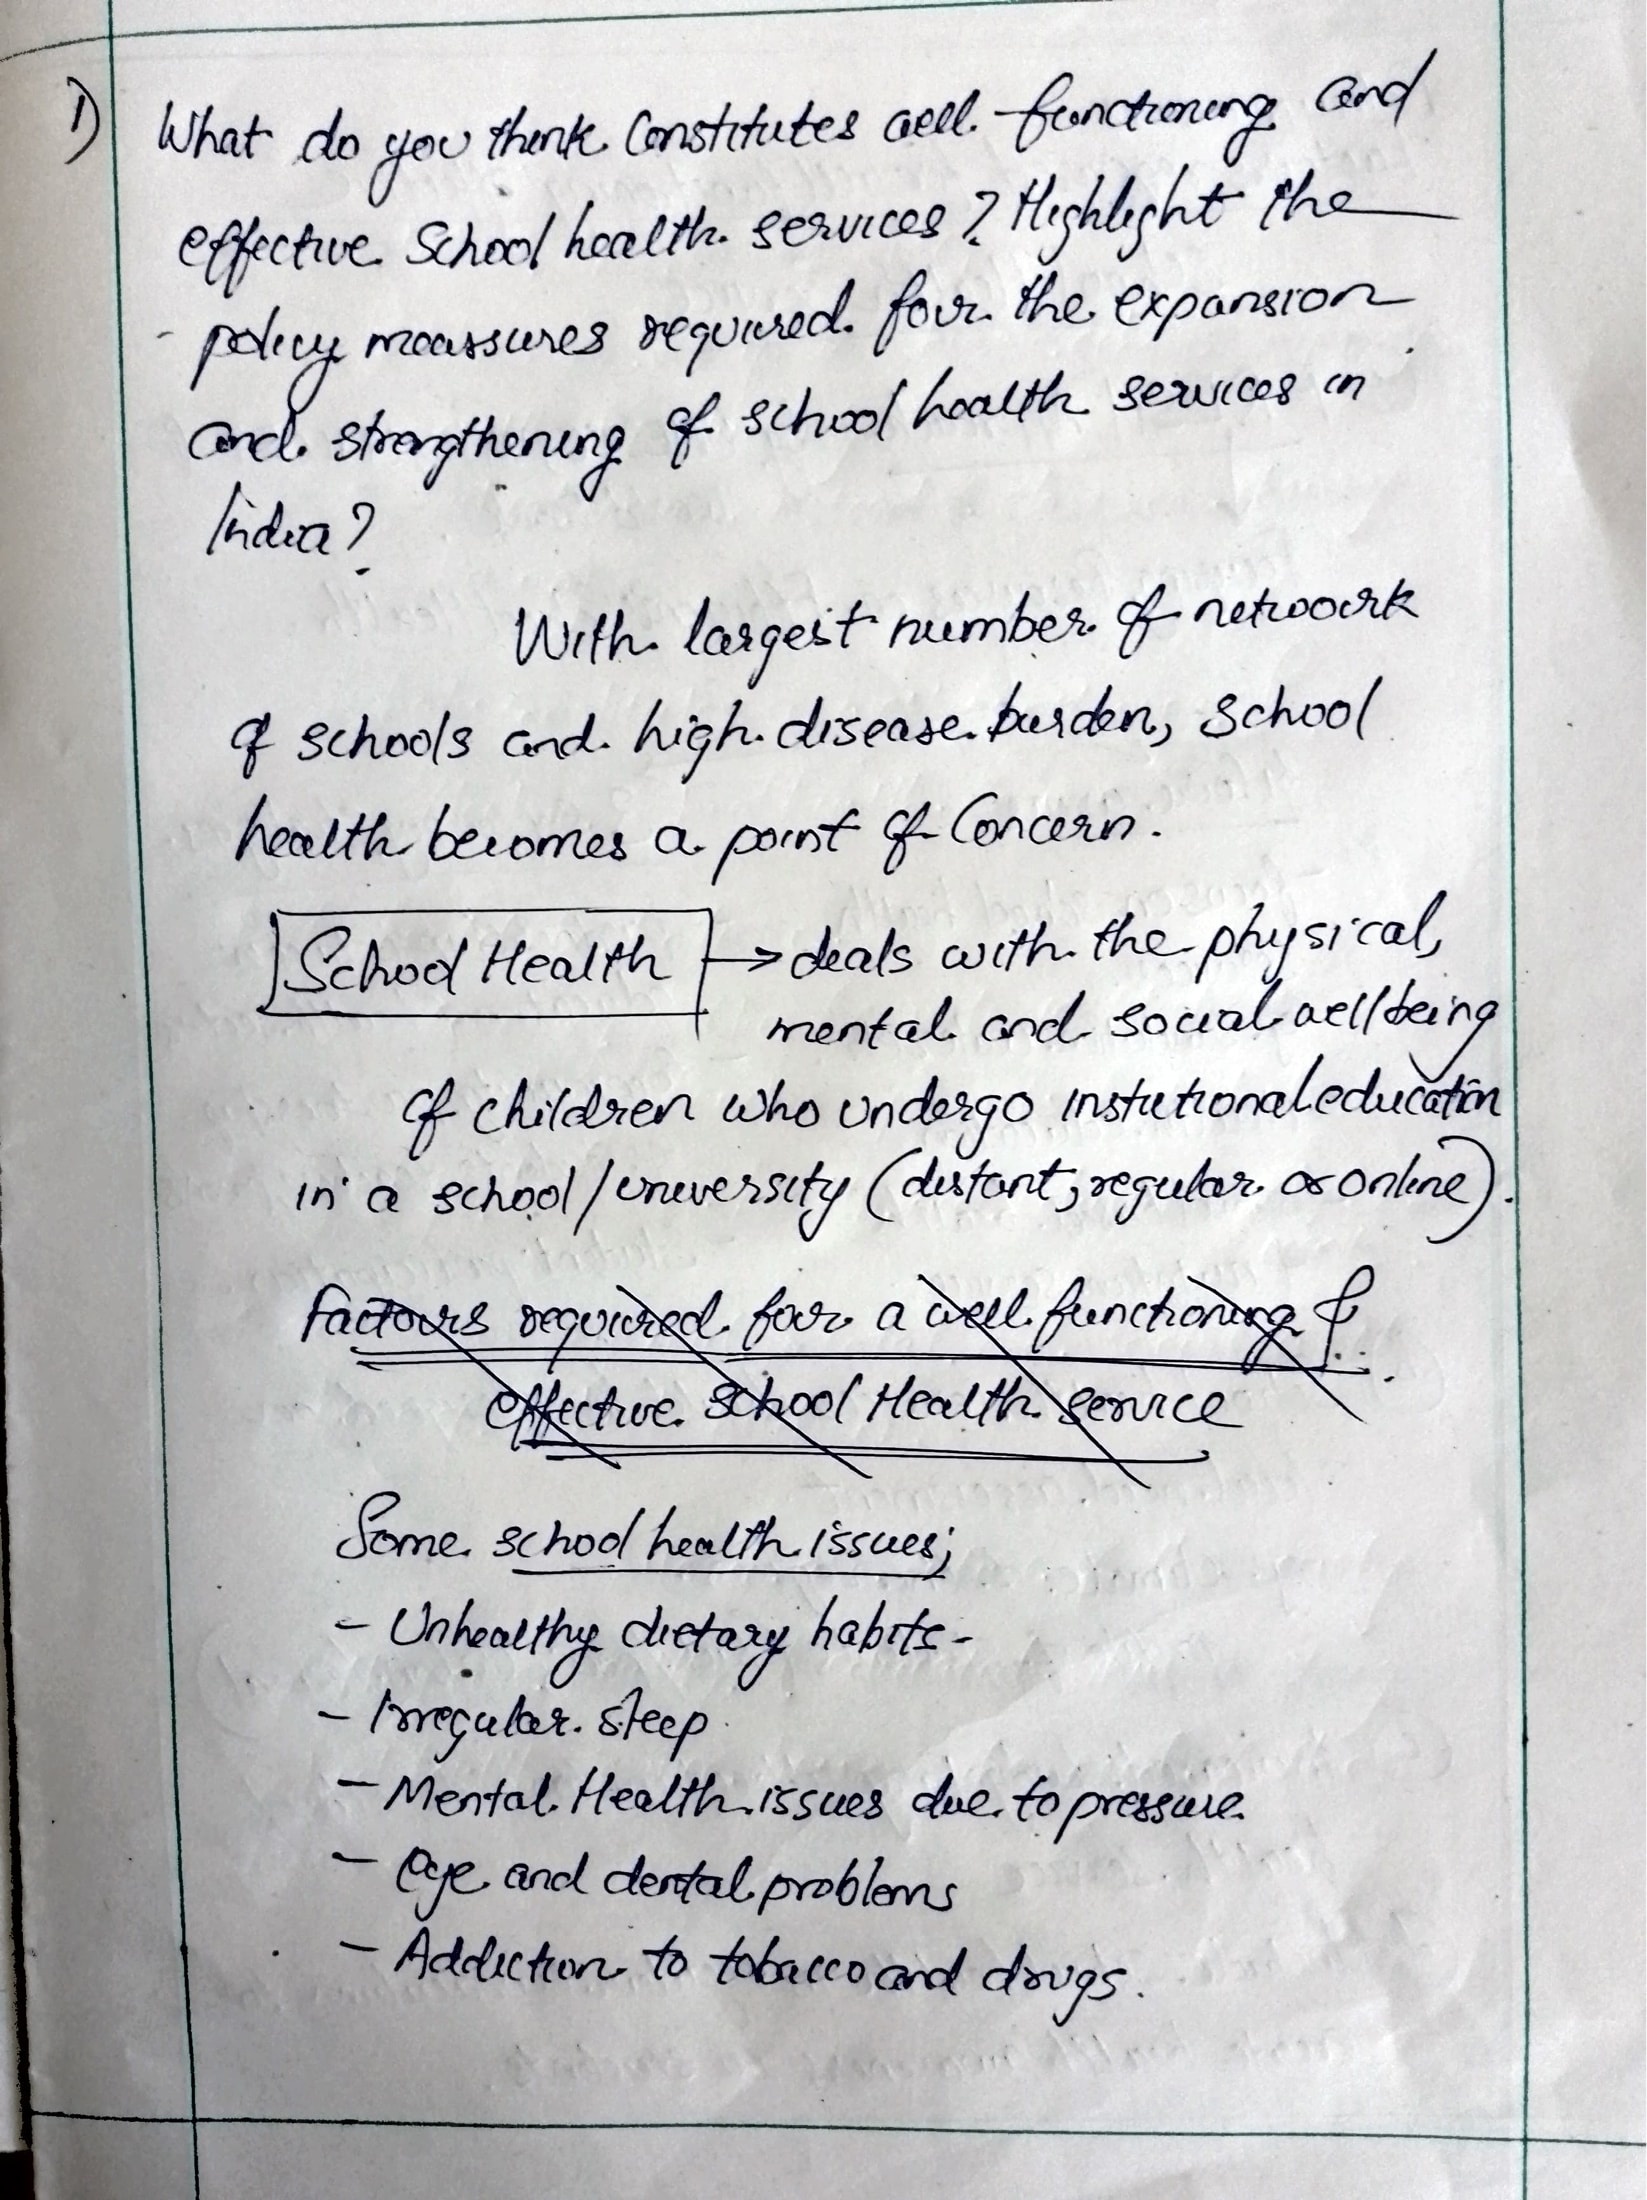 1) What do you think constitutes well functioning and
effective School health services? Highlight the
policy meassures required for the expansion
and strengthening of school health services in
India?
With largest number of network
of schools and high disease burden, school
health becomes a point of Concern.
School Health → deals with the physical,
mental and social wellbeing
of children who undergo instutional education
in a school/university (distant, regular or online).
Factors required for a well functioning &
effective School Health service
Some school health issues;
- Unhealthy dietary habits-
- Irregular sleep
- Mental Health issues due to pressure
- Eye and dental problems
- Addiction to tobacco and drugs.